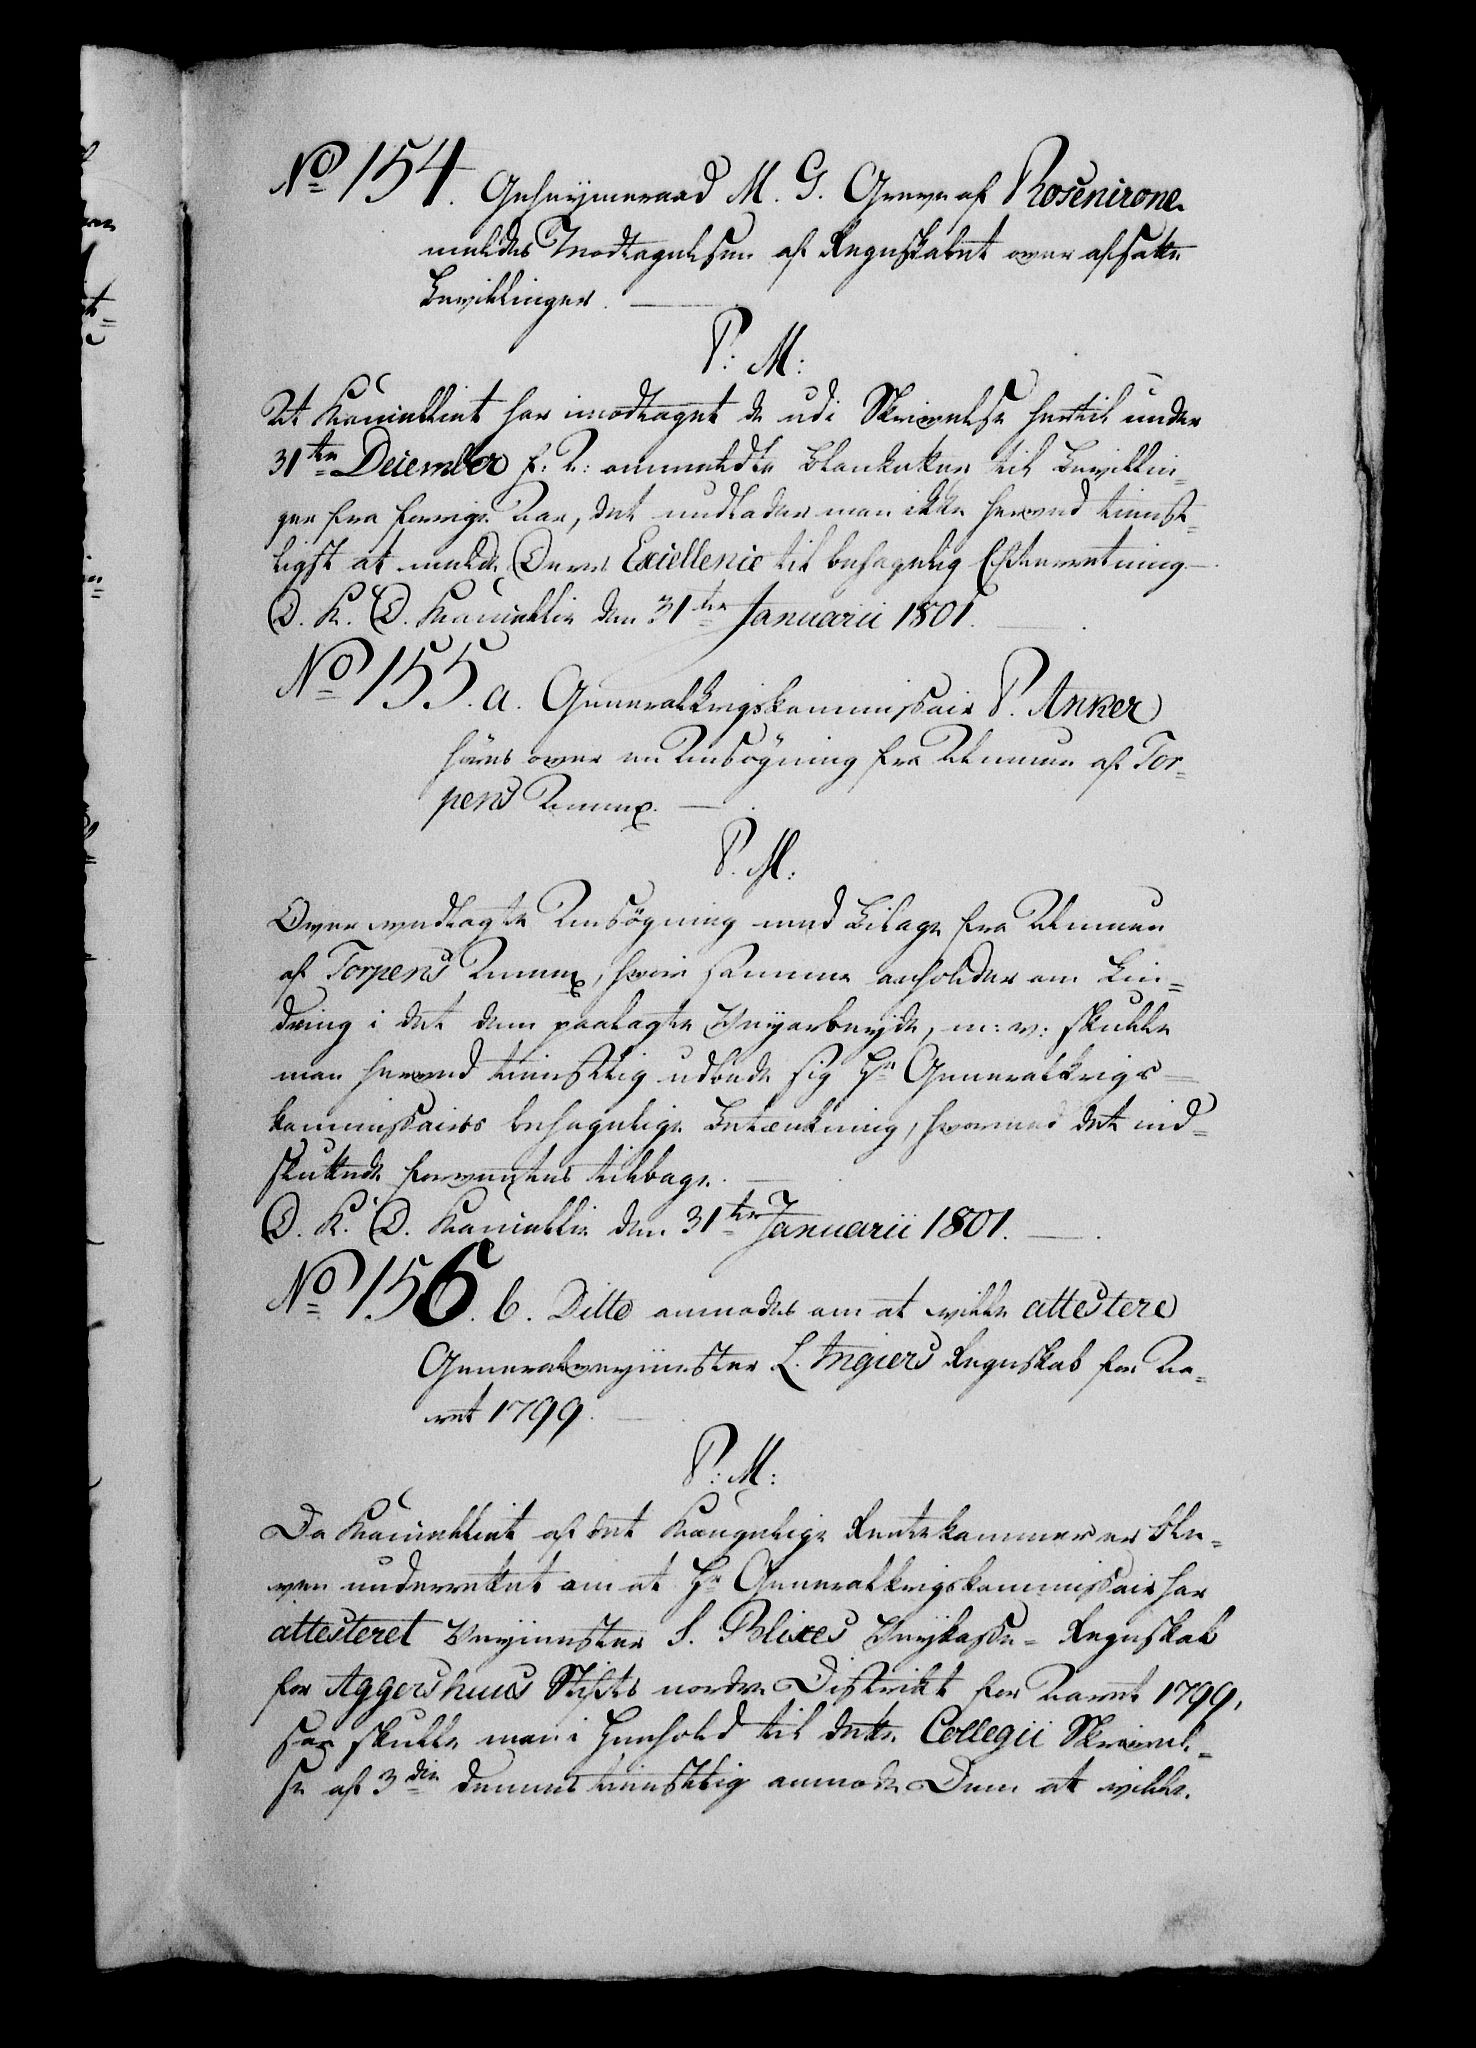 No 154. Geheymeraad M. G. Greve af Rosencrone
meldes Modtagelsen af Regnskabet over afsatte
Bevillinger.
P: M:
At Kancelliet har imodtaget de udi Skrivelse hertil under
31te December f: A: ommeldte Blanketter til Bevillin-
ger fra forrige Aar, det undlader man ikke herved tienst-
ligst at melde Deres Excellence til behagelig Efterretning.
D. K. D. Kancellie den 31te Januarii 1801.
No 155. a. Generalkrigskommissair P. Anker
høres over en Ansøgning fra Almuen af Tor-
pens Annex.
P. M:
Over vedlagte Ansøgning med Bilage fra Almuen
af Torpens Annex, hvori samme anholder om Lin-
dring i det dem paalagte Veyarbeyde, m: v: skulle
man herved tienstlig udbede sig Hr Generalkrigs-
kommissairs behagelige Betænkning, hvormed det ind-
sluttede forventes tilbage.
D. K. D. Kancellie den 31te Januarii 1801.
No 156. b. Ditto anmodes om at ville attestere
Generalveymester L. Ingiers Regnskab for Aa-
ret 1799.
P: M:
Da Kancelliet af det Kongelige Rentekammer er ble-
ven underrettet om at Hr Generalkrigskommissair har
attesteret Veymester S. Blixes Veykasse-Regnskab
for Aggershuus Stifts nordre Distrikt for Aaret 1799,
saa skulle man i Henhold til dette Collegii Skrivel-
se af 3die dennes tienstlig anmode Dem at ville